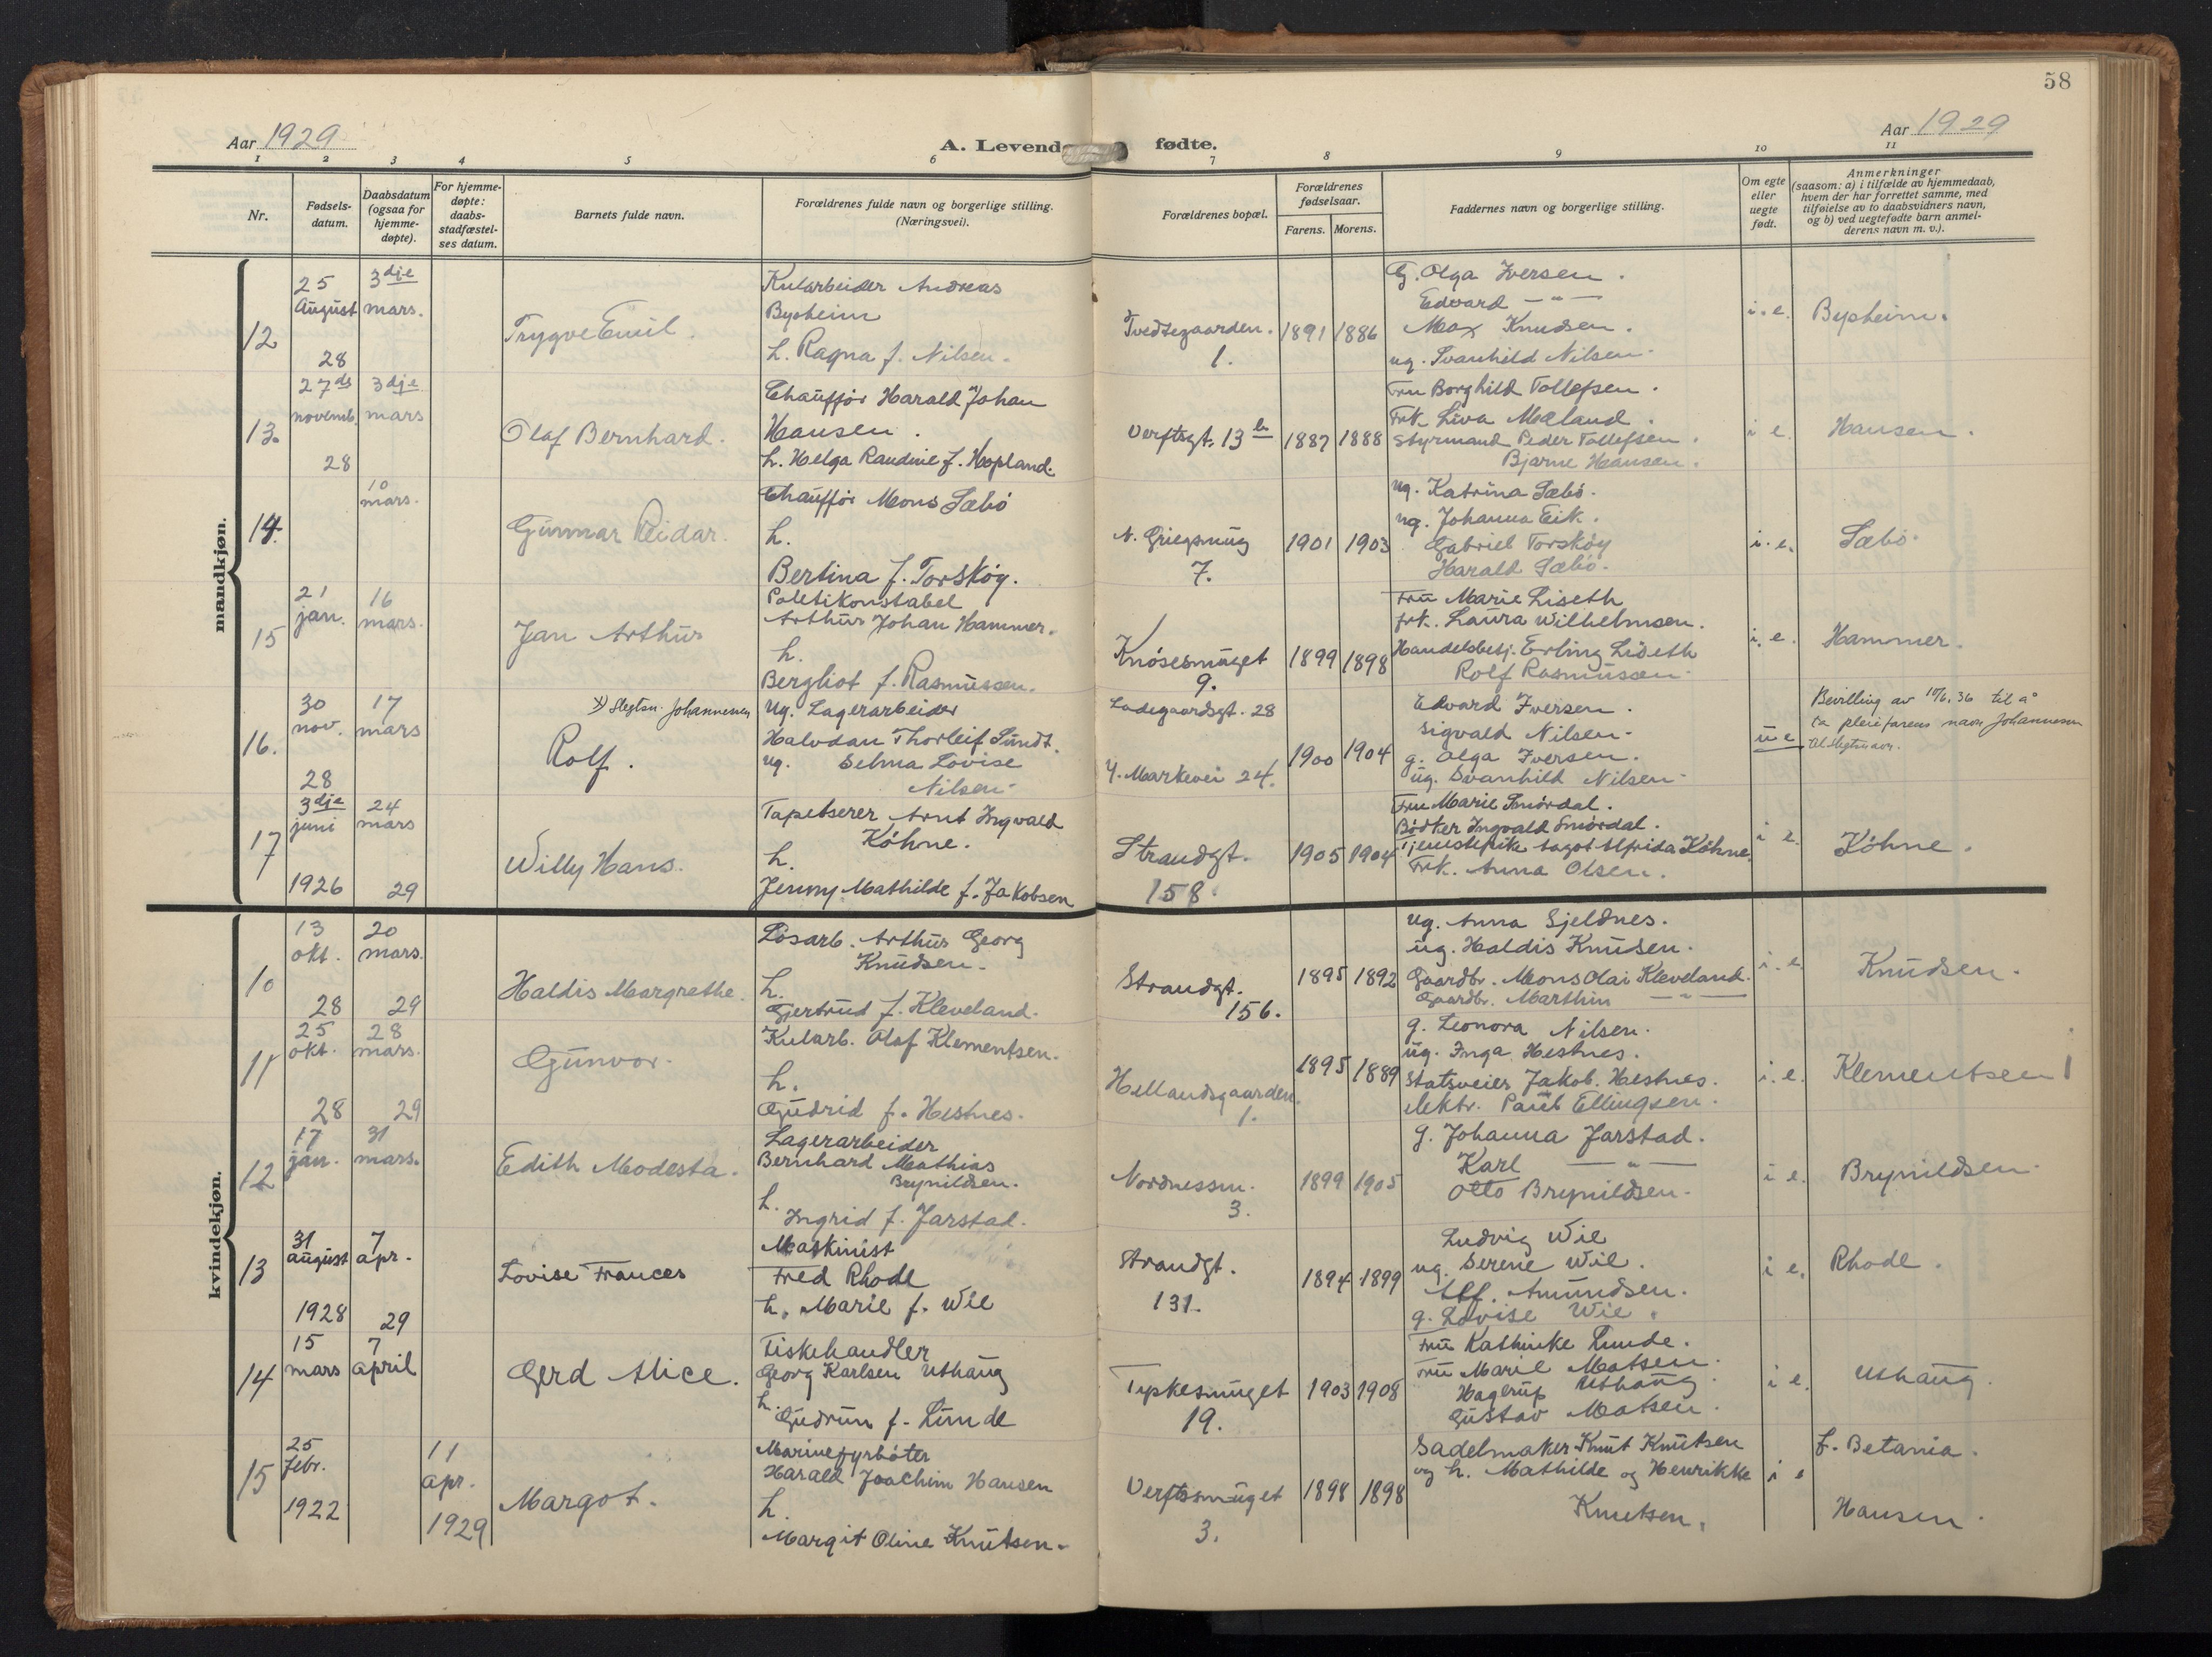 58
Aar 1929
A. Levende fødte.
Aar 1929
1 2 3 4 5 6 7 8 9 10 11
Nr.
Fødsels-
datum.
Daabsdatum
(ogsaa for
hjemme-
døpte).
For hjemme-
døpte:
daabs-
stadfæstel-
ses datum.
Barnets fulde navn.
Forældrenes fulde navn og borgerlige stilling.
(Næringsvei).
Forældrenes bopæl.
Forældrenes
fødselsaar.
Farens. Morens.
Faddernes navn og borgerlige stilling.
Om egte
eller
uegte
født.
Anmerkninger
(saasom: a) i tilfælde av hjemmedaab,
hvem der har forrettet samme, med
tilføielse av to daabsvidners navn,
og b) ved uegtefødte barn anmel-
derens navn m. v.).
mandkjøn.
12
25
August
28
3dje
mars.
Trygve Emil.
Kularbeider Andreas
Bysheim
h. Ragna f. Nilsen.
Tvedtegaarden.
1.
1891 1886
G. Olga Iversen.
Edvard — " —
Max Knudsen.
ug. Svanhild Nilsen.
i. e.
Bysheim.
13.
27de
novemb.
28
3dje
mars
Olaf Bernhard.
Chauffør Harald Johan
Hansen.
h. Helga Raudine f. Hopland.
Verftsgt. 13
1887 1888
Fru Borghild Tollefsen.
Frk. Liva Mæland.
Styrmand Peder Tollefsen.
Bjarne Hansen.
i e.
Hansen.
14.
10
mars.
Gunnar Reidar.
Chauffør Mons Sæbø
h.
Bertina f. Torskøy.
N. Griegsmug
7.
1901 1903
ug. Katrina Sæbø.
ug. Johanna Eik.
Gabriel Torskøy
Harald Sæbø.
i. e.
Sæbø.
15
21
jan.
16
mars.
Jan Arthur
Politikonstabel
Arthur Johan Hammer.
h.
Bergliot f. Rasmussen.
Knøsesmuget
9.
1899 1898
Fru Marie Liseth
frk. Laura Wilhelmsen.
Handelsbesj. Erling Liseth
Rolf Rasmussen.
i. e.
Hammer.
16.
30
nov.
28
17
mars
Slegtsn. Johannessen
Rolf.
Ug. Lagerarbeider
Halvdan Thorleif Sundt.
ug. Selma Lovise
Nilsen.
Ladegaardsgt. 28
Y. Markevei 24.
1900 1904
Edvard Iversen.
Sigvald Nilsen.
g. Olga Iversen.
ug. Svanhild Nilsen.
u e
Bevilling av 10/6. 36 til å
ta pleiefarens navn Johannessen
til slegtsnavn.
17
3dje
juni
1926
24
mars
29
Willy Hans.
Tapetserer Arnt Ingvald
Køhne.
h.
Jenny Mathilde f. Jakobsen
Strandgt.
158.
1905 1904
Fru Marie Smørdal.
Bødker Ingvald Smørdal.
Tjenestepike Dagot Alfrida Køhne.
Frk. Anna Olsen.
i e.
Køhne.
kvindekjøn.
10
13
okt.
28
20
mars.
29
Haldis Margrethe.
Løsarb. Arthur Georg
Knudsen.
h.
Gjertrud f. Kleveland.
Strandgt.
156.
1895 1892
ug. Anna Sjeldnes.
ug. Haldis Knudsen.
Gaardbr. Mons Olai Kleveland.
Gaardbr. Marthin — " —
i. e.
Knudsen.
11
25
okt.
28
28
mars.
29
Gunvor.
Kularb. Olaf Klementsen.
h.
Gudrid f. Hestnes.
Hellandsgaarden
1.
1895 1889
g. Leonora Nilsen.
ug. Inga Hestnes.
Statsveier Jakob. Hestnes.
elektr. Paul Ellingsen.
i. e.
Klementsen
12
17
jan.
31
mars.
Edith Modesta.
Lagerarbeider
Bernhard Mathias
Brynildsen.
h. Ingrid f. Jarstad.
Nordnessm.
3.
1899 1905
g. Johanna Jarstad.
Karl — " —
Otto Brynildsen.
i e.
Brynildsen.
13
31
august
1928
7
apr.
29
Lovise Frances
Maskinist
Fred Rhode
h. Marie f. Wie
Strandgt.
131.
1894 1899
Ludvig Wie
ug. Serene Wie.
Alf. Amundsen.
g. Lovise Wie.
i e.
Rhode.
14
15
mars
7
april
Gerd Alice.
Fiskehandler
Georg Karlsen Uthaug
h. Gudrun f. Lunde
Typkesmuget
19.
1903 1908
Fru Kathinke Lunde.
Fru Marie Matsen.
Hagerup Uthaug
Gustav Matsen.
i e.
Uthaug.
15
25
febr.
1922
11
apr.
1929
Margot.
Marinefyrbøter
Harald Joachim Hansen
h.
Margit Oline Knutsen.
Verftssmuget
3.
1898 1898
Sadelmaker Knut Knutsen
og h. Mathilde og Henrikke
Knutsen.
i e
f. Betania.
Hansen.